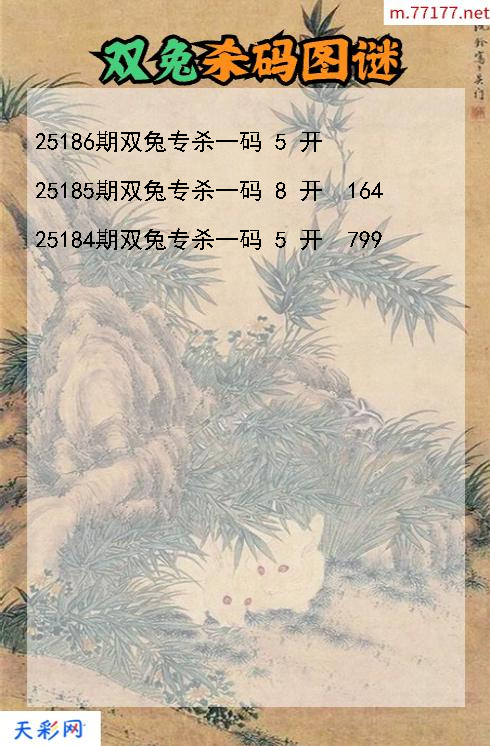 m.77177.net
双兔杀码图谜
25186期双兔专杀一码 5 开
25185期双兔专杀一码 8 开 164
25184期双兔专杀一码 5 开 799
天彩网